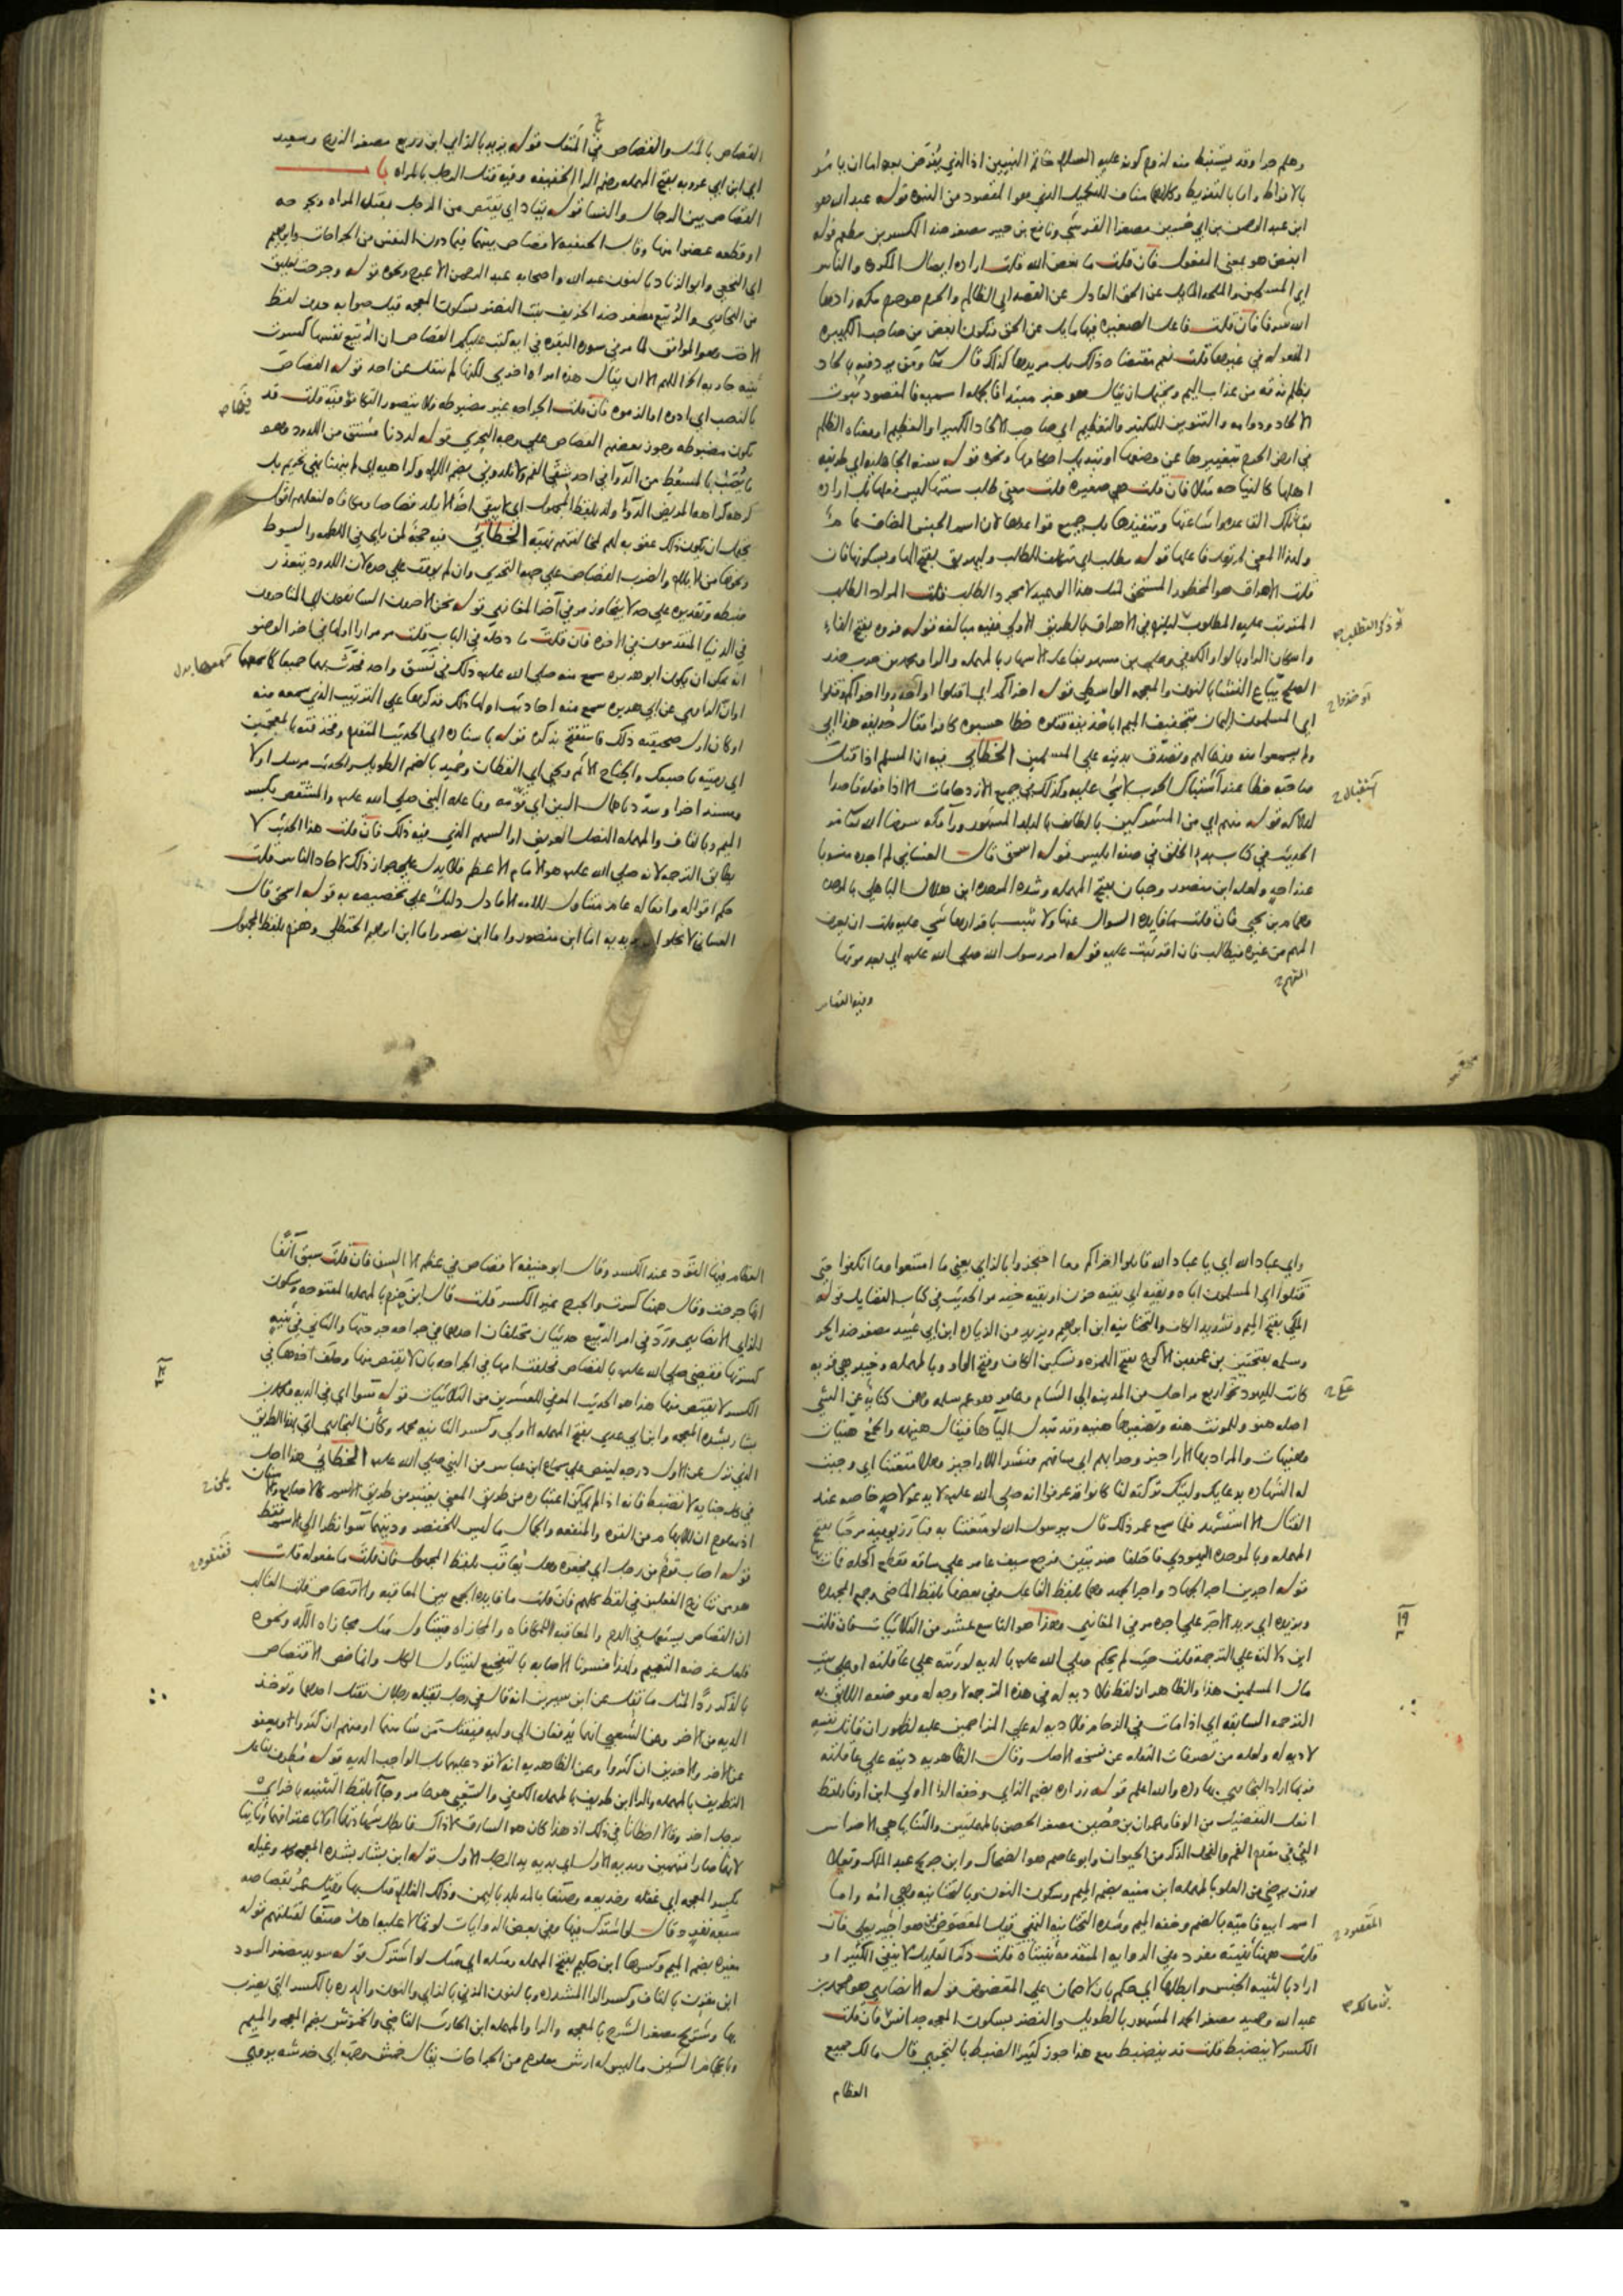 وهلم جرا وقد يستنبط منه لزوم كونه عليه السلام خاتم النبيين اذ الذي
بالافراط واما بالتفريط وكلاهما مناف للتكميل الذي هو المقصود من قوله عبد الله هو
ابن عبد الرحمن بن ابي حسين مصغرا القرشي ونافع بن جبير مصغر ضد الكسر بن مطعم قوله
ابغض هو بمعنى المفعول فان قلت ما بغض الله قلت ارادة ايصال المكروه والناس
اي المسلمين والملحد المايل عن الحق العادل عن القصد اي الظالم والحرم حرم مكه زادها
الله شرفا فان قلت فاعل الصغيرة فيها مايل عن الحق فيكون ابغض من صاحب الكبيره
المفعوله في غيرها قلت نعم مقتضاه ذلك بل مريدها كذلك قال تعالى ومن يرد فيه بالحاد
بظلم نذقه من عذاب اليم ويحتمل ان يقال هو خبر مبتدا فالجمله اسميه فالمقصود ثبوت
الالحاد ودوامه والتنوين للتكثير والتعظيم اي صاحب الالحاد الكبير او العظيم او معناه الظلم
في ارض الحرم بتغييرها عن وضعها او تبديل احكامها ونحوه قوله سنة الجاهليه اي طريقه
اهلها كالنياحه مثلا فان قلت هي صغيره قلت معنى طلب سنتها ليس فعلها بل اراده
بقا تلك القاعده واشاعتها وتنفيذها بل جميع قواعدها لان اسم الجنس المضاف عام
ولهذا المعنى لم يقل فاعلها قوله مطلب اي متكلف للطلب وليهريق بفتح الها وبسكونها فان
قلت الاهراق هو المحظور المستحق لمثل هذا الوعيد لا مجرد الطلب قلت المراد الطلب
المترتب عليه المطلوب ليلزم في الاهراق بالطريق الاولى ففيه مبالغه قوله فروه بفتح الفاء
واسكان الرا وبالواو الكوفي وعلي بن مسهر بفاعل الاسهار بالمهمله والرا ومحمد بن حرب ضد
الصلح بياع النشا بالنون والمعجمه الواسطي قوله اخراكم اي اقتلوا او احذروا اخراكم فقتلوا
اي المسلمون اليمان بتخفيف الميم ابا حذيفه قتلوه خطا حسبوه كافرا فقال حذيفه هذا ابي
ولم يسمعوا منه فدعا لهم وتصدق بديته على المسلمين الخطابي فيه ان المسلم اذا قتل
صاحبه خطا عند اشتباك الحرب لا شي عليه وكذلك في جميع الازدحامات الا اذا فعله قاصدا
لهلاكه قوله منهم اي من المشركين بالطائف البلد المشهور ورا مكه
الحديث في كتاب بدء الخلق في صفة ابليس قوله اسحق قال الغساني لم اجده منسوبا
عند احد ولعله ابن منصور وحبان بفتح المهمله وشدة الموحده ابن هلال الباهلي بالموحده
وهمام بن يحيى فان قلت ما فايده السوال عنها ولا يثبت باقرارها شي عليه قلت ان يعرف
المتهم من غيره فيطالب فان اقر ثبت عليه قوله امر رسول الله صلى الله عليه اي بعد موتها
وفيه القصاص
القصاص بالمثل والقصاص في المثقل قوله يزيد بالزاي ابن زريع مصغر الزرع وسعيد
اي ابن ابي عروبه بفتح المهمله وضم الرا الخفيفه وفيه قتل الرجل بالمراه با
القصاص بين الرجال والنسا قوله يقاد اي يقتص من الرجل بقتل المراه وبجرحه
او قطعه عضوا منها وقال الحنفيه لا قصاص بينهما فيما دون النفس من الجراحات وابرهيم
اي النخعي وابو الزناد بالنون عبد الله واصحابه عبد الرحمن الاعرج ونحوه قوله وجرحت تعليق
من البخاري والربيع مصغر ضد الخريف بنت النضر بسكون المعجمه قيل صوابه حذف لفظ
الاخت وهو الموافق لما مر في سورة البقره في اية كتب عليكم القصاص ان الربيع نفسها كسرت
ثنية جاريه الخ اللهم الا ان يقال هذه امراه اخرى لكنه لم ينقل عن احد قوله القصاص
بالنصب اي ادوا او الزموه فان قلت الجراحه غير مضبوطه فلا يتصور التكافؤ فيه قلت قد
تكون مضبوطه وجوز بعضهم القصاص على وجه التحري قوله لددنا مشتق من اللدود وهو
ما يصب بالمسعط من الدوا في احد شقي الفم ولا تلدوني بضم اللام وكراهيه اي لم ينهنا نهي تحريم بل
كرهه كراهة المريض الدوا ولد بلفظ المجهول اي لا يبقى احد الا يلد قصاصا ومكافاه لفعلهم اقول
يحتمل ان يكون ذلك عقوبه لهم لمخالفتهم نهيه الخطابي فيه حجة لمن راى في اللطمه والسوط
ونحوها من الايلام والضرب القصاص على جهة التحري وان لم يوقف على حده لان اللدود يتعذر
ضبطه وتقديره على حد لا يتجاوز مر في اخر المغازي قوله نحن الاخرون السابقون اي المتاخرون
في الدنيا المتقدمون في الاخره فان قلت ما دخله في الباب قلت مر مرارا اولها في اخر الوضو
انه يمكن ان يكون ابو هريره سمع منه صلى الله عليه ذلك في نسق واحد فحدث بهما جميعا كما سمعهما
او ان الراوي عن ابي هريره سمع منه احاديث اولها ذلك فذكرها على الترتيب الذي سمعه منه
او كان اول صحيفته ذلك فاستفتح بذكره قوله باسناده اي الحديث المتقدم وخذفته بالمعجمتين
اي رميته باصبعك والجناح الاثم ويحيى اي القطان وحميد بالضم الطويل والحديث مرسل اولا
ومسند اخرا وسدد باهمال السين اي قومه وفاعله النبي صلى الله عليه والمشقص بكسر
الميم وبالقاف والمهمله النصل العريض او السهم الذي فيه ذلك فان قلت هذا الحديث لا
يطابق الترجمه لانه صلى الله عليه هو الامام الاعظم فلا يدل على جواز ذلك لاحاد الناس قلت
حكم اقواله وافعاله عام متناول للامه الا ما دل دليل على تخصيصه به قوله اسحق قال
الغساني لا يخلو ان يريد به اما ابن منصور واما ابن نصر واما ابن ابرهيم الحنظلي وهزم بلفظ المجهول
واي عباد الله اي يا عباد الله قاتلوا اخراكم وما احتجزوا بالزاي يعني ما امتنعوا وما انكفوا حتى
قتلوا اي المسلمون اباه وبقيه اي بقية حزن او بقية خير مر الحديث في كتاب الفضايل قوله
المكي بفتح الميم وتشديد الكاف والتحتانيه ابن ابرهيم ويزيد من الزياده ابن ابي عبيد مصغر ضد الحر
وسلمه بفتحتين بن عمرو بن الاكوع بفتح الهمزه وتسكين الكاف وفتح الواو وبالمهمله وخيبر هي قريه
كانت لليهود نحو اربع مراحل من المدينه الى الشام وعامر هو عم سلمه وهن كناية عن الشي
اصله هنو وللمونث هنه وتصغيرها هنيه وقد تبدل اليا ها فيقال هنيهه والجمع هنيات
وهنيهات والمراد بها الاراجيز وحدا بهم اي ساقهم منشدا للاراجيز وهلا متعتنا اي وجبت
له الشهاده بدعائك وليتك تركته لنا كانوا قد عرفوا انه صلى الله عليه لا يدعو لاحد خاصه عند
القتال الا استشهد فلما سمع عمر ذلك قال يرسول الله لو متعتنا به فبارز يوميذ مرحبا بفتح
المهمله وبالموحده اليهودي فاختلفا ضربتين فرجع سيف عامر على ساقه فقطع اكحله فمات
قوله اجرين اجر الجهاد واجر الجهد وهما بلفظ الفاعل وفي بعضها بلفظ الماضي وجمع المجهده
ويزيده اي يزيد الاجر على اجره مر في المغازي وهذا هو التاسع عشر من الثلاثيات فان قلت
اين دلالته على الترجمه قلت حيث لم يحكم صلى الله عليه بالديه لورثته على عاقلته او على بيت
مال المسلمين هذا والظاهر ان لفظ فلا ديه له في هذه الترجمه لا وجه له وموضعه اللايق به
الترجمه السابقه اي اذا مات في الزحام فلا ديه له على المزاحمين عليه لظهور ان قاتل نفسه
لا ديه له ولعله من تصرفات النقله عن نسخة الاصل وقال الظاهريه ديته على عاقلته
فربما اراد البخاري بهذا رده والله اعلم قوله زراره بضم الزاي وخفة الرا الاولى ابن اوفى بلفظ
افعل التفضيل من الوفا وعمران بن حصين مصغر الحصن بالمهملتين والثنايا هي الاضراس
التي في مقدم الفم والفحل الذكر من الحيوان وابو عاصم هو الضحاك وابن جريج عبد الملك ويعلى
بوزن يرضى من العلو بالمهمله ابن منيه بضم الميم وسكون النون وبالتحتانيه وهي امه واما
اسم ابيه فاميه بالضم وخفة الميم وشدة التحتانيه التميمي قيل المعضوض هو اجير يعلى فان
قلت ههنا ثنيته مفرد وفي الروايه المتقدمه ثنيتاه قلت ذكر القليل لا ينفي الكثير او
اراد بالثنيه الجنس وابطلها اي حكم بان لا ضمان على المعضوض قوله الانصاري هو محمد بن
عبد الله وحميد مصغر الحمد المشهور بالطويل والنضر بسكون المعجمه جد انس فان قلت
الكسر لا ينضبط قلت قد ينضبط مع هذا جوز كثيرا الضبط بالتخمين قال مالك جميع
العظام
العظام فيها القود عند الكسر وقال ابو حنيفه لا قصاص في عظم الا السن فان قلت سبق انفا
انها جرحت وقال ههنا كسرت والجرح غير الكسر قلت قال ابن حزم بالمهمله المفتوحه وسكون
الزاي الانصاري ورد في امر الربيع حديثان مختلفان احدهما في جراحه جرحتها والثاني في ثنيه
كسرتها فقضى صلى الله عليه بالقصاص فحلفت امها في الجراحه بان لا يقتص منها وحلف اخوها في
الكسر لا يقتص منها هذا هو الحديث الموفي للعشرين من الثلاثيات قوله سوا اي في الديه ومحمد بن
بشار بشدة المعجمه وابن ابي عدي بفتح المهمله الاولى وكسر الثانيه محمد وكان البخاري اتى بهذا الطريق
الذي نزل عن الاول درجه لينص على سماع ابن عباس من النبي صلى الله عليه الخطابي هذا اصل
في كل جنايه لا تنضبط فانه اذا لم يمكن اعتباره من طريق المعنى يعتبر من طريق الاسم كالاصابع والاسنان
اذ معلوم ان للابهام من القوه والمنفعه والجمال ما ليس للخنصر وديتهما سوا نظرا الى الاسم فقط
قوله اصاب قوم من رجل اي فجعوه وهل يعاقب بلفظ المجهول فان قلت ما مفعوله قلت
هو من تنازع الفعلين في لفظ كلهم فان قلت ما فايدة الجمع بين المعاقبه والاقتصاص قلت الغالب
ان القصاص يستعمل في الدم والمعاقبه المكافاه والمجازاه فيتناول مثل مجازاة اللد ونحوه
فلعل غرضه التعميم ولهذا فسرنا الاصابه بالتفجيع ليتناول الكل وانما خص الاقتصاص
بالذكر ردا لمثل ما نقل عن ابن سيرين انه قال في رجل يقتله رجلان يقتل احدهما وتوخذ
الديه من الاخر وعن الشعبي انهما يدفعان الى وليه فيقتل من شا منهما او منهم ان كثروا ويعفو
عن الاخر والاخرين ان كثروا وعن الظاهريه انه لا قود عليهما بل الواجب الديه قوله مطرف بفاعل
التطريف بالمهمله والرا ابن طريف بالمهمله الكوفي والشعبي هو عامر وجاآ بلفظ التثنيه باخر اي
برجل اخر وقالا اخطانا في ذلك اذ هذا كان هو السارق لا ذاك فابطل شهادتهما اولا
لانهما صارا متهمين وبديه الاول اي بديه يد الرجل الاول قوله ابن بشار بشدة المعجمه وغيله
بكسر المعجمه اي غفله وخديعه وصنعا بالمد بلد باليمن وذلك الغلام قتل بها وقتل عمر بقصاصه
سبعه نفر وقال لو اشترك فيها وفي بعض الروايات لو تمالا عليه اهل صنعا لقتلتهم قوله
مغيره بضم الميم وكسرها ابن حكيم بفتح المهمله ومثله اي مثل لو اشترك قوله سويد مصغر السود
ابن مقرن بالقاف وكسر الرا المشدده وبالنون المزني بالزاي والنون والدره بالكسر التي يضرب
بها وشريح مصغر الشرح بالمعجمه والرا والمهمله ابن الحارث القاضي والخموش بضم المعجمه والميم
وباعجام الشين ما ليس له ارش معلوم من الجراحات يقال خمش وجهه اي خدشه